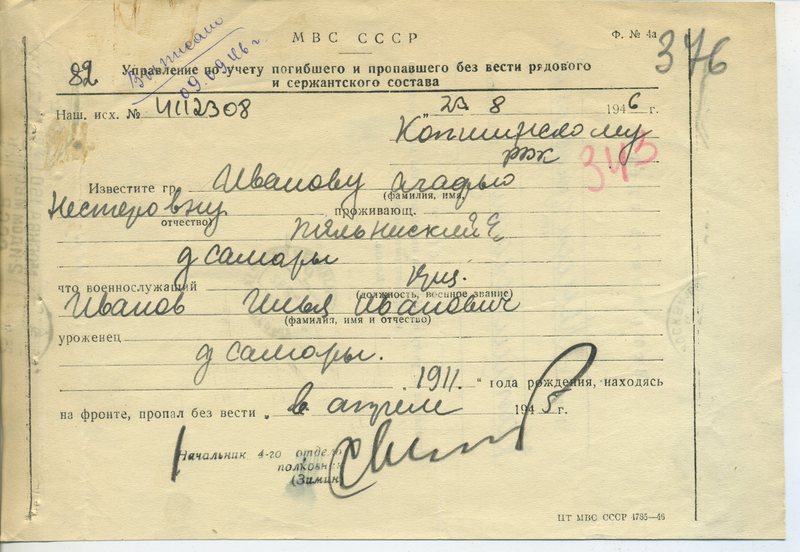 МВС СССР
Ф. № 4а
376
Выписано
09.09.46 г.
82
Управление по учету погибшего и пропавшего без вести рядового
и сержантского состава
Наш. исх. № 4112308
"23" 8 1946 г.
рвк
343
Известите гр. Иванову Агафью
(фамилия, имя,
Нестеровну проживающ.
отчество)
д Самары
что военнослужащий
(должность, военное звание)
Иванов Илья Иванович
(фамилия, имя и отчество)
уроженец
д Самары.
1911 года рождения, находясь
на фронте, пропал без вести в апреле 1945 г.
Начальник 4-го отдела
полковник
(Зимин)
ЦТ МВС СССР 4785—46